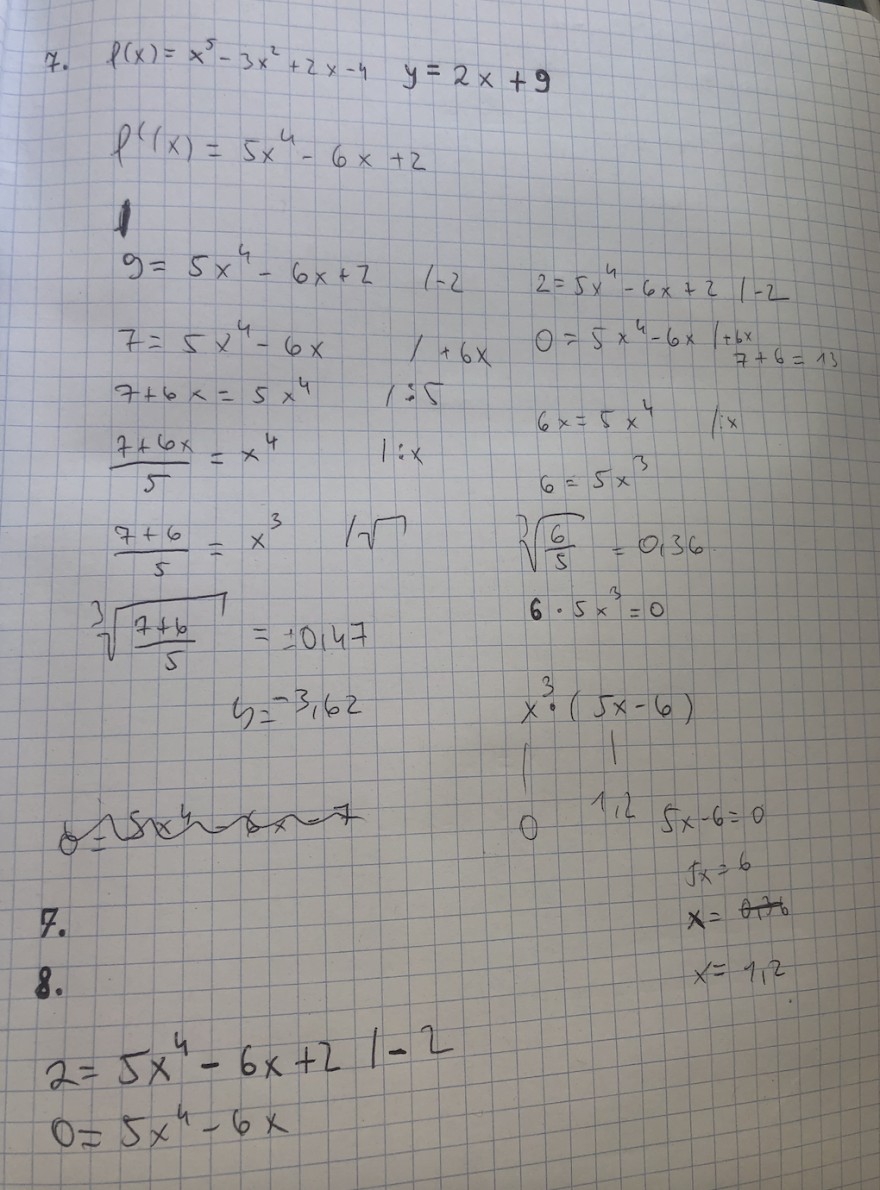 7. f(x) = x⁵ - 3x² + 2x - 4 y = 2x + 9
f'(x) = 5x⁴ - 6x + 2
9 = 5x⁴ - 6x + 2 /-2
7 = 5x⁴ - 6x / +6x
7+6x = 5x⁴ /:5
(7+6x)/5 = x⁴ /:x
(7+6)/5 = x³ /√
³√((7+6)/5) = ±0,47
y = -3,62
0 = 5x⁴ - 6x - 7
2 = 5x⁴ - 6x + 2 /-2
0 = 5x⁴ - 6x /+6x
7+6 = 13
6x = 5x⁴ /:x
6 = 5x³
³√(6/5) = 0,36
6 · 5x³ = 0
x³ · (5x - 6)
0 1,2
5x - 6 = 0
5x = 6
x = 0,36
x = 1,2
7.
8.
2 = 5x⁴ - 6x + 2 /-2
0 = 5x⁴ - 6x